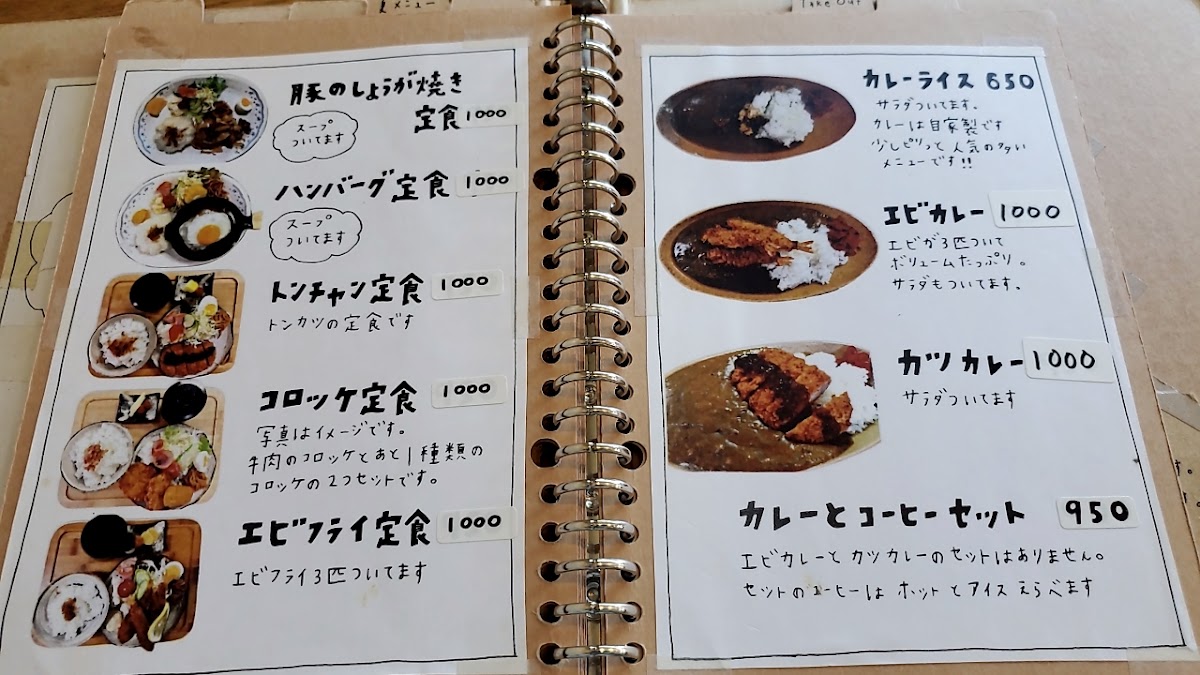 メニュー
Take Out
豚のしょうが焼き
定食 1000
スープ
ついてます
ハンバーグ定食 1000
スープ
ついてます
トンチャン定食 1000
トンカツの定食です
コロッケ定食 1000
写真はイメージです。
牛肉のコロッケとあと1種類の
コロッケの2つセットです。
エビフライ定食 1000
エビフライ3匹ついてます
カレーライス 650
サラダついてます。
カレーは自家製です
少しピリッと人気の多い
メニューです!!
エビカレー 1000
エビが3匹ついて
ボリュームたっぷり。
サラダもついてます。
カツカレー 1000
サラダついてます
カレーとコーヒーセット 950
エビカレーとカツカレーのセットはありません。
セットのコーヒーはホットとアイスえらべます